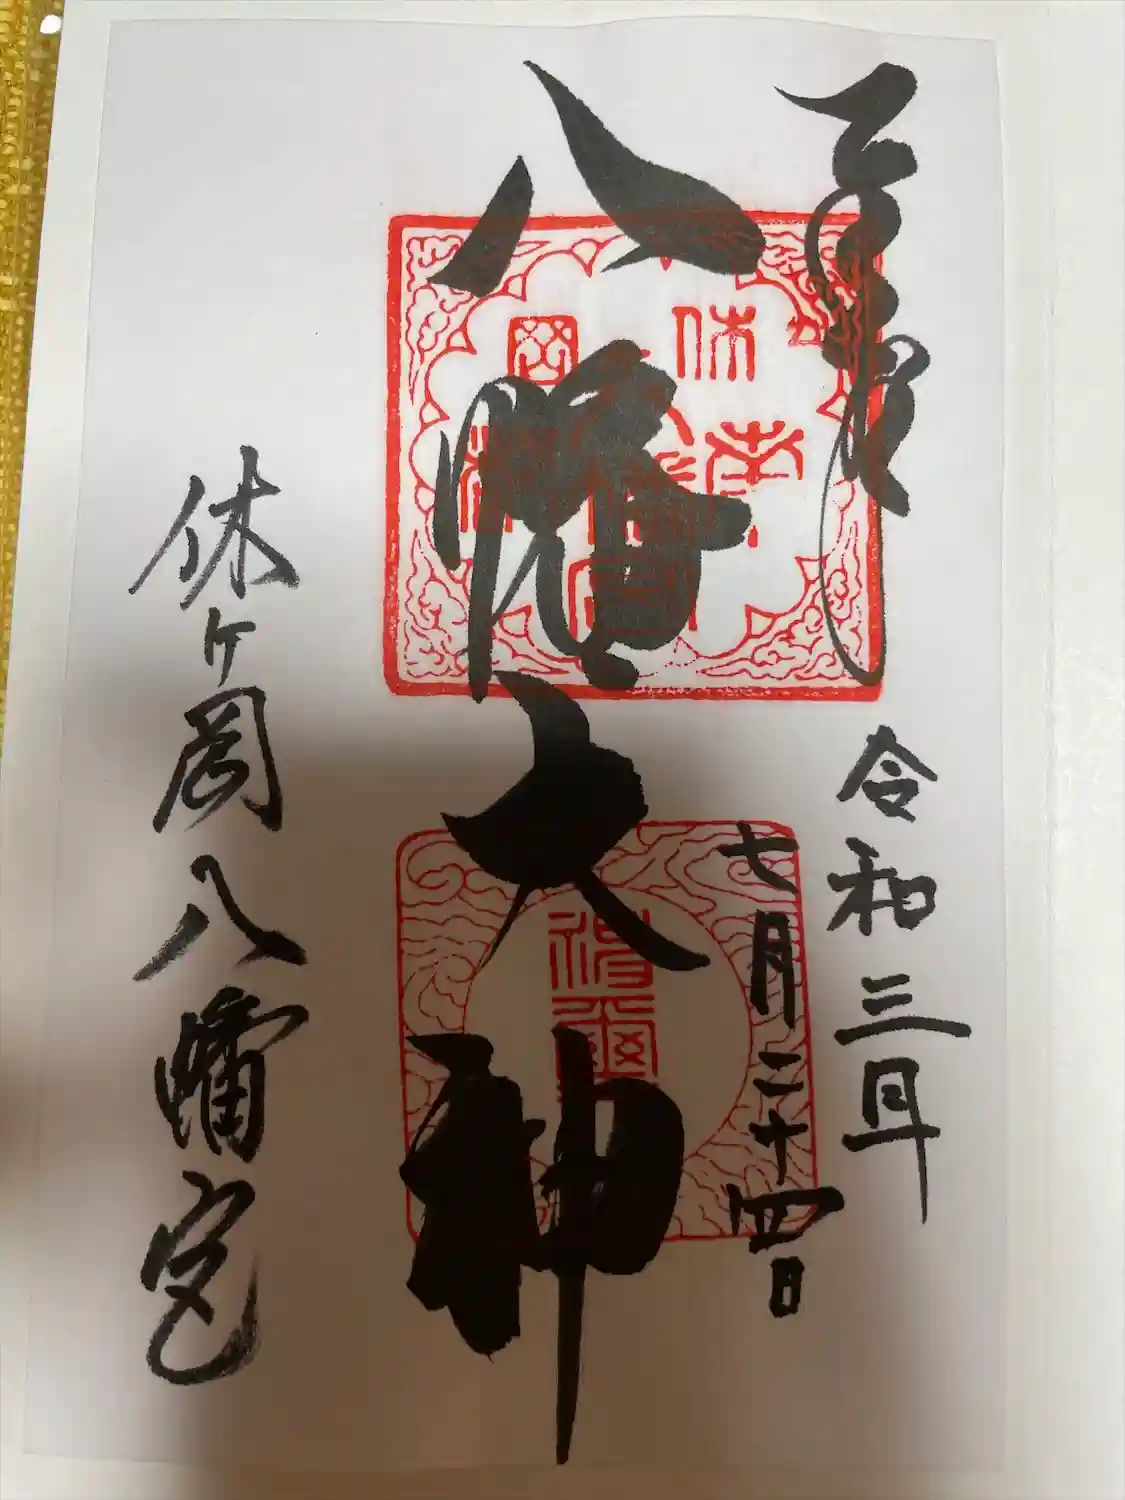 奉拝
令和三年
七月二十四日
八幡大神
休ヶ岡八幡宮